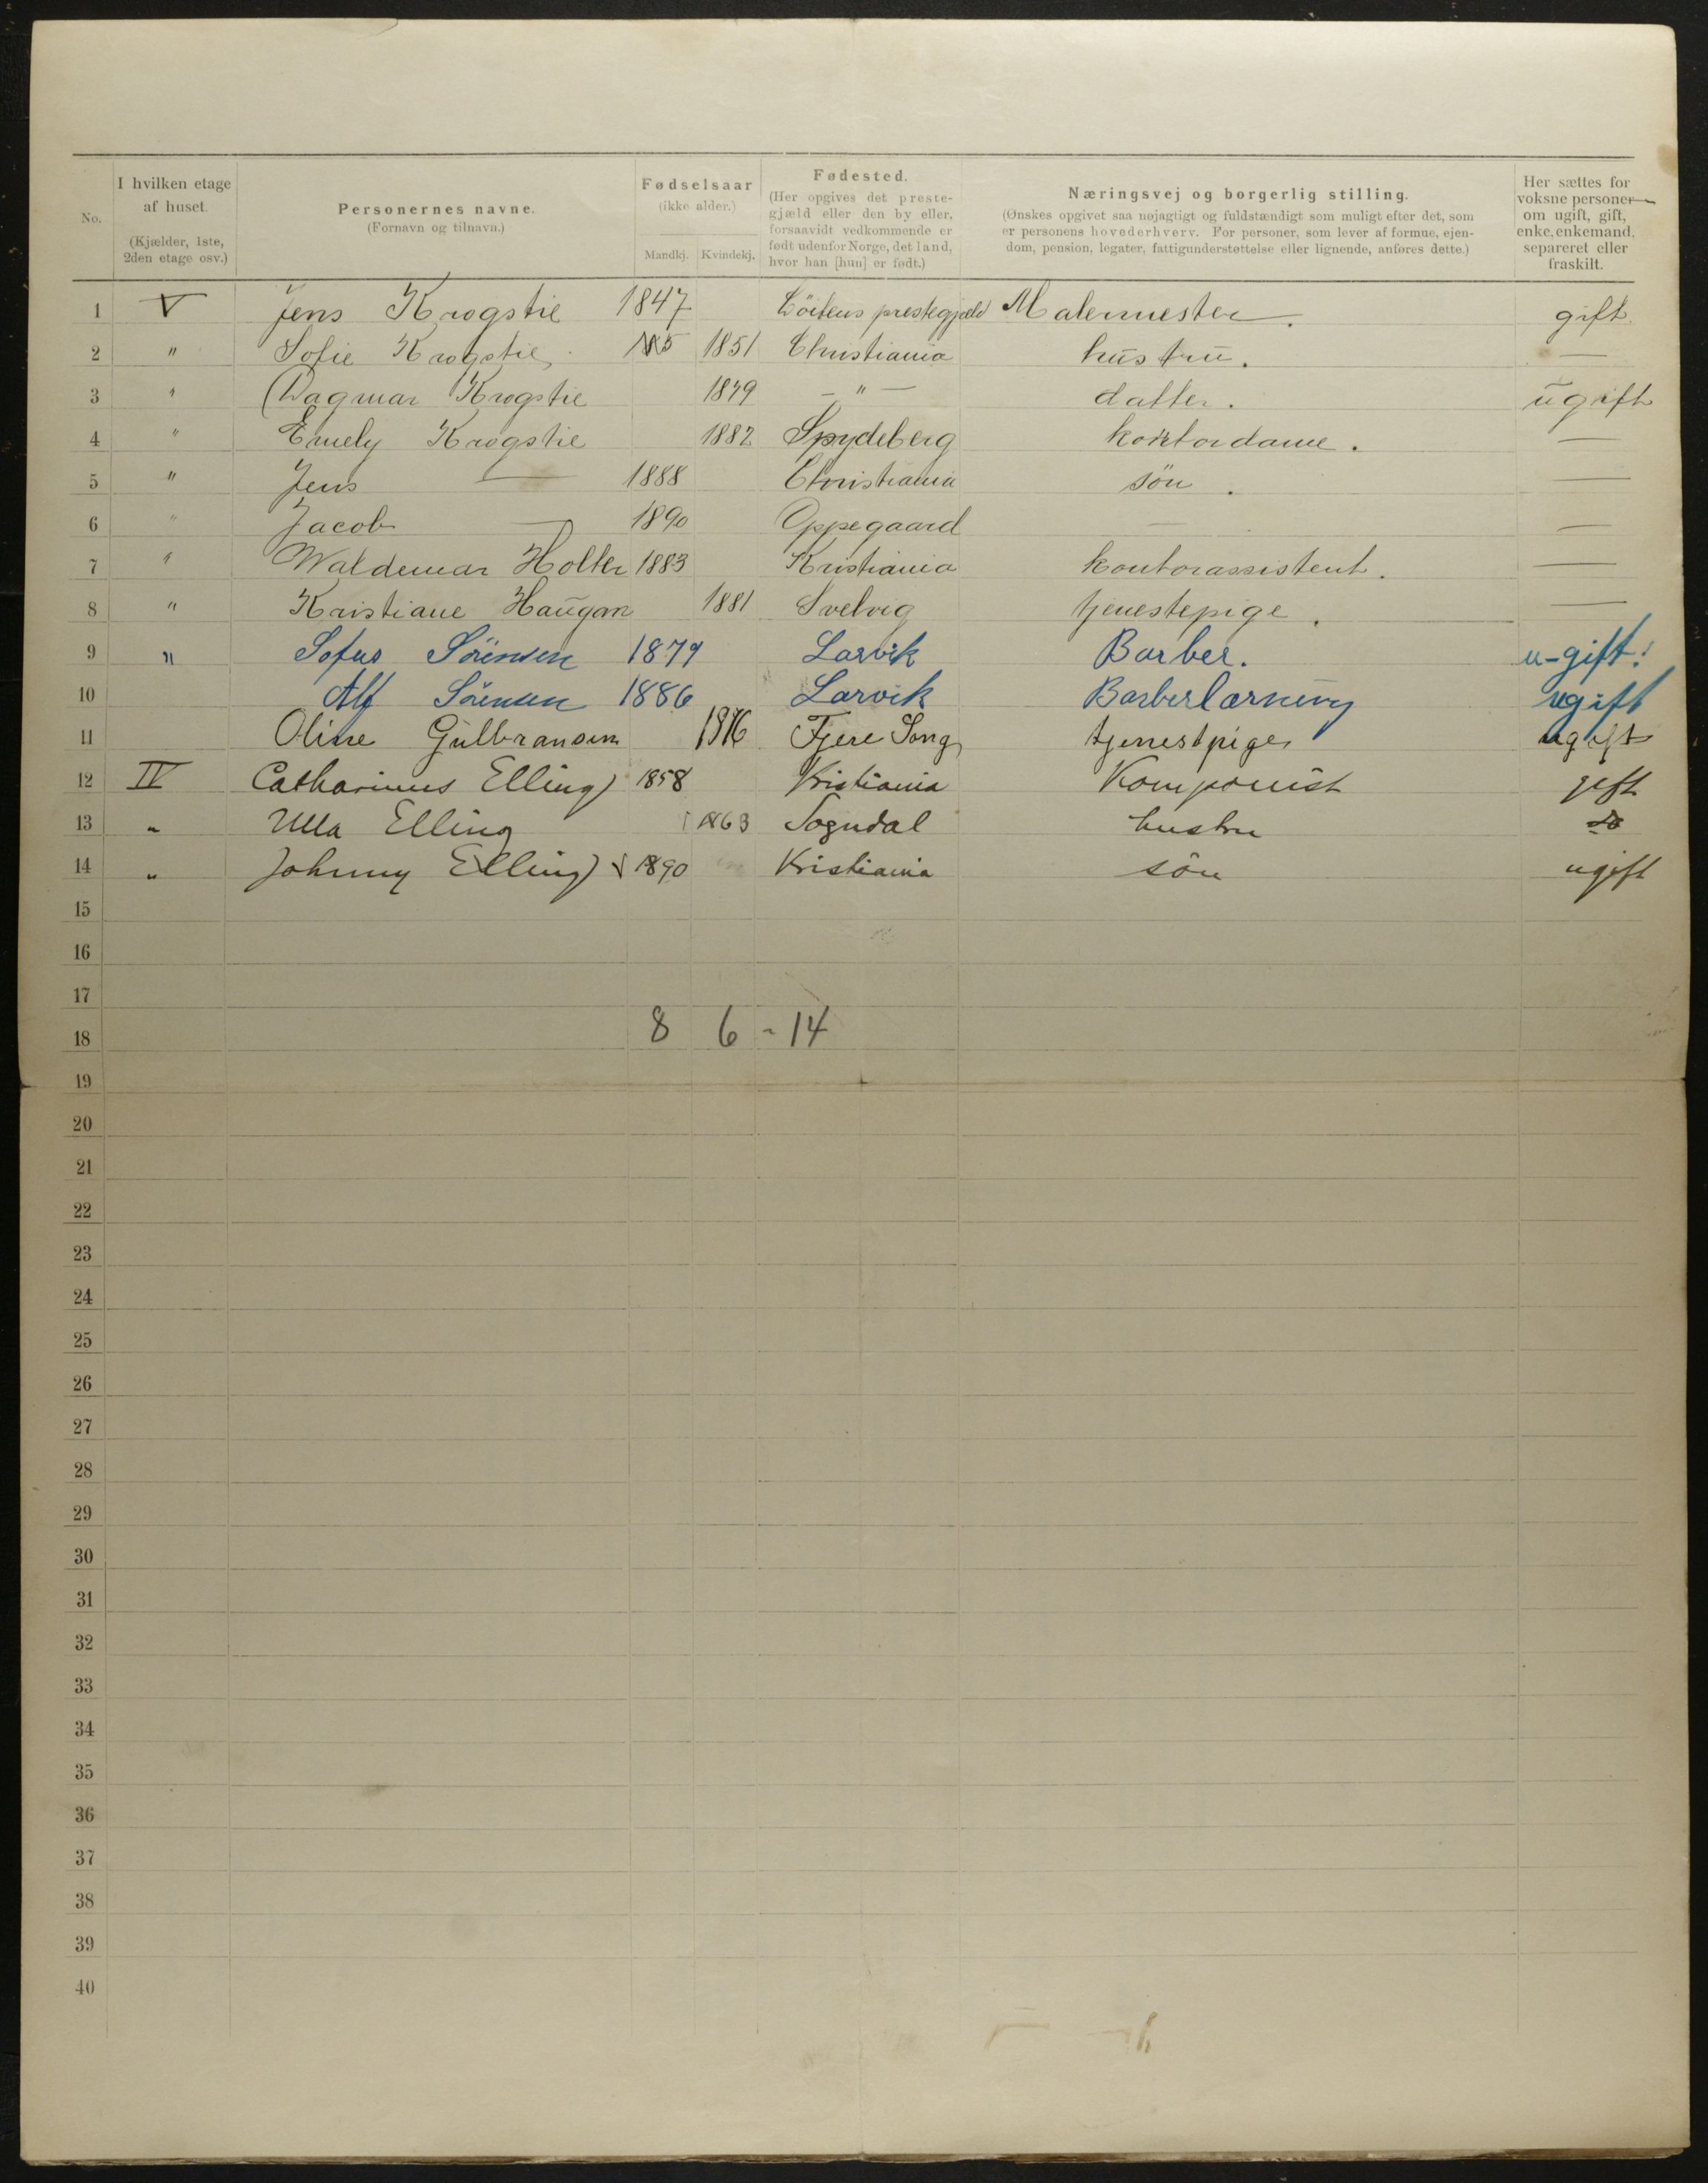 No.	I hvilken etage af huset. (Kjælder, 1ste, 2den etage osv.)	Personernes navne. (Fornavn og tilnavn.)	Fødselsaar (ikke alder.) Mandkj. Kvindekj.	Fødested. (Her opgives det prestegjæld eller den by eller, forsaavidt vedkommende er født udenfor Norge, det land, hvor han [hun] er født.)	Næringsvej og borgerlig stilling. (Ønskes opgivet saa nøjagtigt og fuldstændigt som muligt efter det, som er personens hovederhverv. For personer, som lever af formue, ejendom, pension, legater, fattigunderstøttelse eller lignende, anføres dette.)	Her sættes for voksne personer om ugift, gift, enke, enkemand, separeret eller fraskilt.
1 V Jens Krogstie 1847 Löitens prestegjæld Malermester. gift
2 " Sofie Krogstie 1851 Christiania hustru. —
3 " Dagmar Krogstie 1879 — " — datter. ugift
4 " Emely Krogstie 1882 Spydeberg kontordame. —
5 " Jens — 1888 Christiania sön. —
6 " Jacob — 1890 Oppegaard — —
7 " Waldemar Holter 1883 Kristiania kontorassistent. —
8 " Kristiane Haugan 1881 Svelvig tjenestepige. —
9 " Sofus Sörensen 1879 Larvik Barber. u-gift!
10 Alf Sörensen 1886 Larvik Barberlærning ugift
11 Oline Gulbransen 1876 Fjere tjenestpige ugift
12 IV Catharinus Elling 1858 Kristiania Komponist gift
13 " Ulla Elling 1863 Sogndal hustru do
14 " Johnny Elling 1890 Kristiania sön ugift
15
16
17
18 8 6 - 14
19
20
21
22
23
24
25
26
27
28
29
30
31
32
33
34
35
36
37
38
39
40